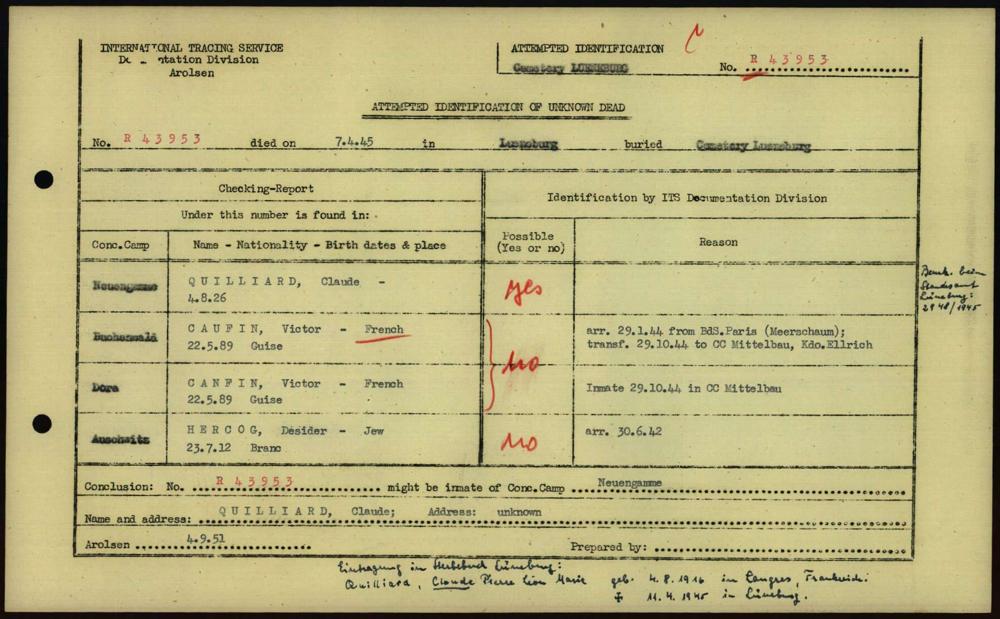 INTERNATIONAL TRACING SERVICE
Documentation Division
Arolsen
ATTEMPTED IDENTIFICATION
Cemetery LUENEBURG
No. R 43953
ATTEMPTED IDENTIFICATION OF UNKNOWN DEAD
No. R 43953 died on 7.4.45 in Lueneburg buried Cemetery Lueneburg
Checking-Report
Under this number is found in:
Identification by ITS Documentation Division
Conc.Camp Name - Nationality - Birth dates & place Possible (Yes or no) Reason
Neuengamme QUILLIARD, Claude - yes
4.8.26
Buchenwald CAUFIN, Victor - French no arr. 29.1.44 from BdS.Paris (Meerschaum);
22.5.89 Guise transf. 29.10.44 to CC Mittelbau, Kdo.Ellrich
Dora CANFIN, Victor - French Inmate 29.10.44 in CC Mittelbau
22.5.89 Guise
Auschwitz HERCOG, Desider - Jew no arr. 30.6.42
23.7.12 Branc
Beurk. beim
Standesamt
Lüneburg:
2948/1945
Conclusion: No. R 43953 might be inmate of Conc.Camp Neuengamme
Name and address: QUILLIARD, Claude; Address: unknown
Arolsen 4.9.51 Prepared by:
Eintragung im Sterbebuch Lüneburg:
Quilliard, Claude Pierre Léon Marie geb. 4.8.1916 in Langres, Frankreich.
✝ 11.4.1945 in Lüneburg.